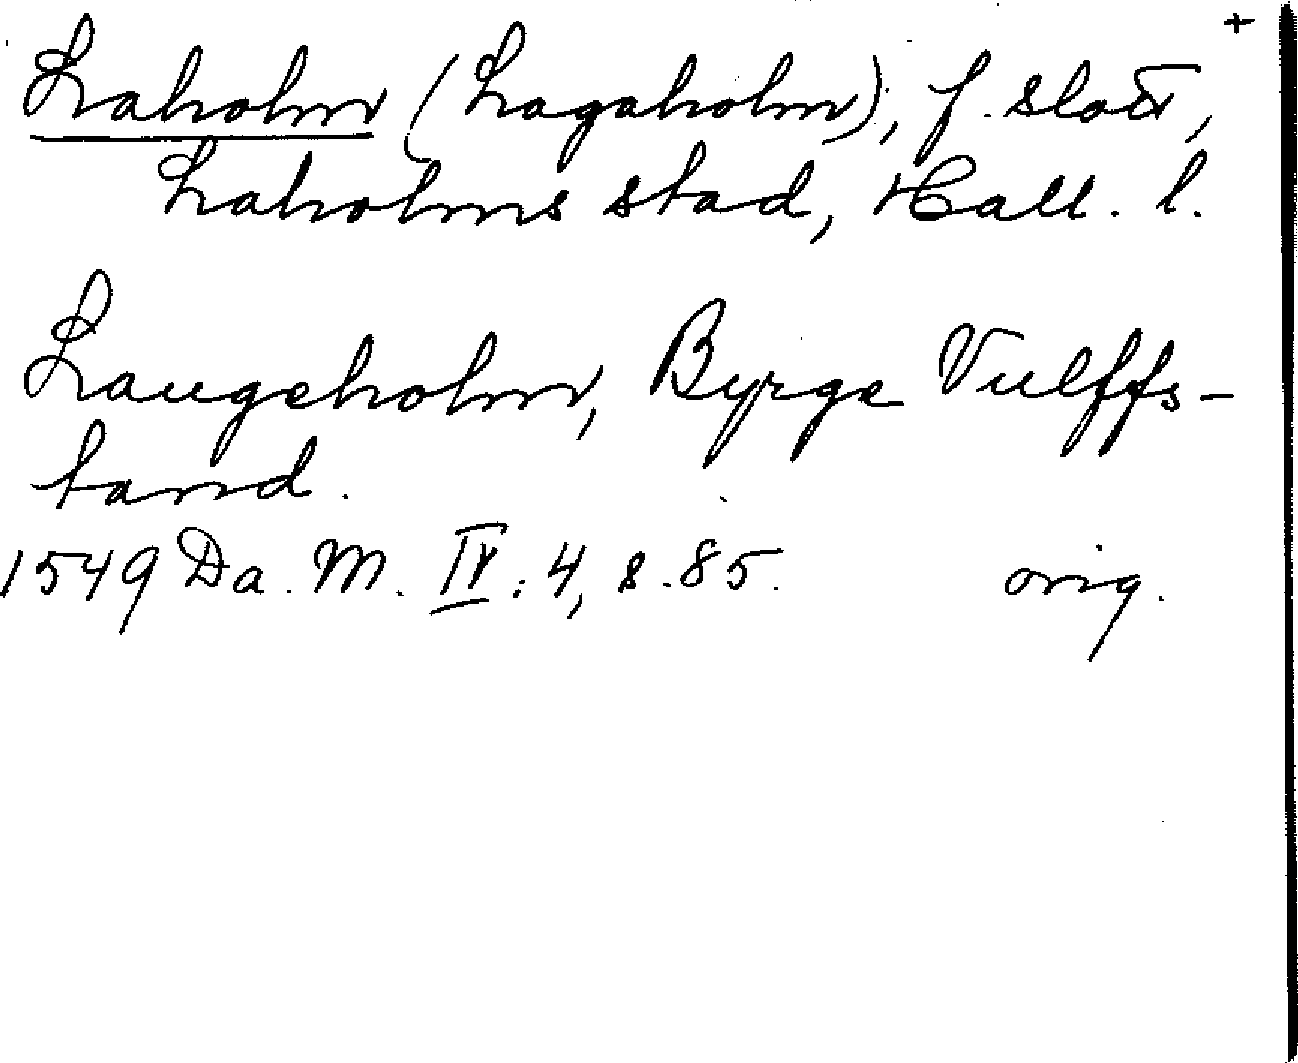 +
Laholm (Lagaholm), f. slott,
Laholms stad, Hall. l.
Laugeholm, Byrge Vulffs-
tand.
1549 Da. M. IV: 4, s. 85. orig.